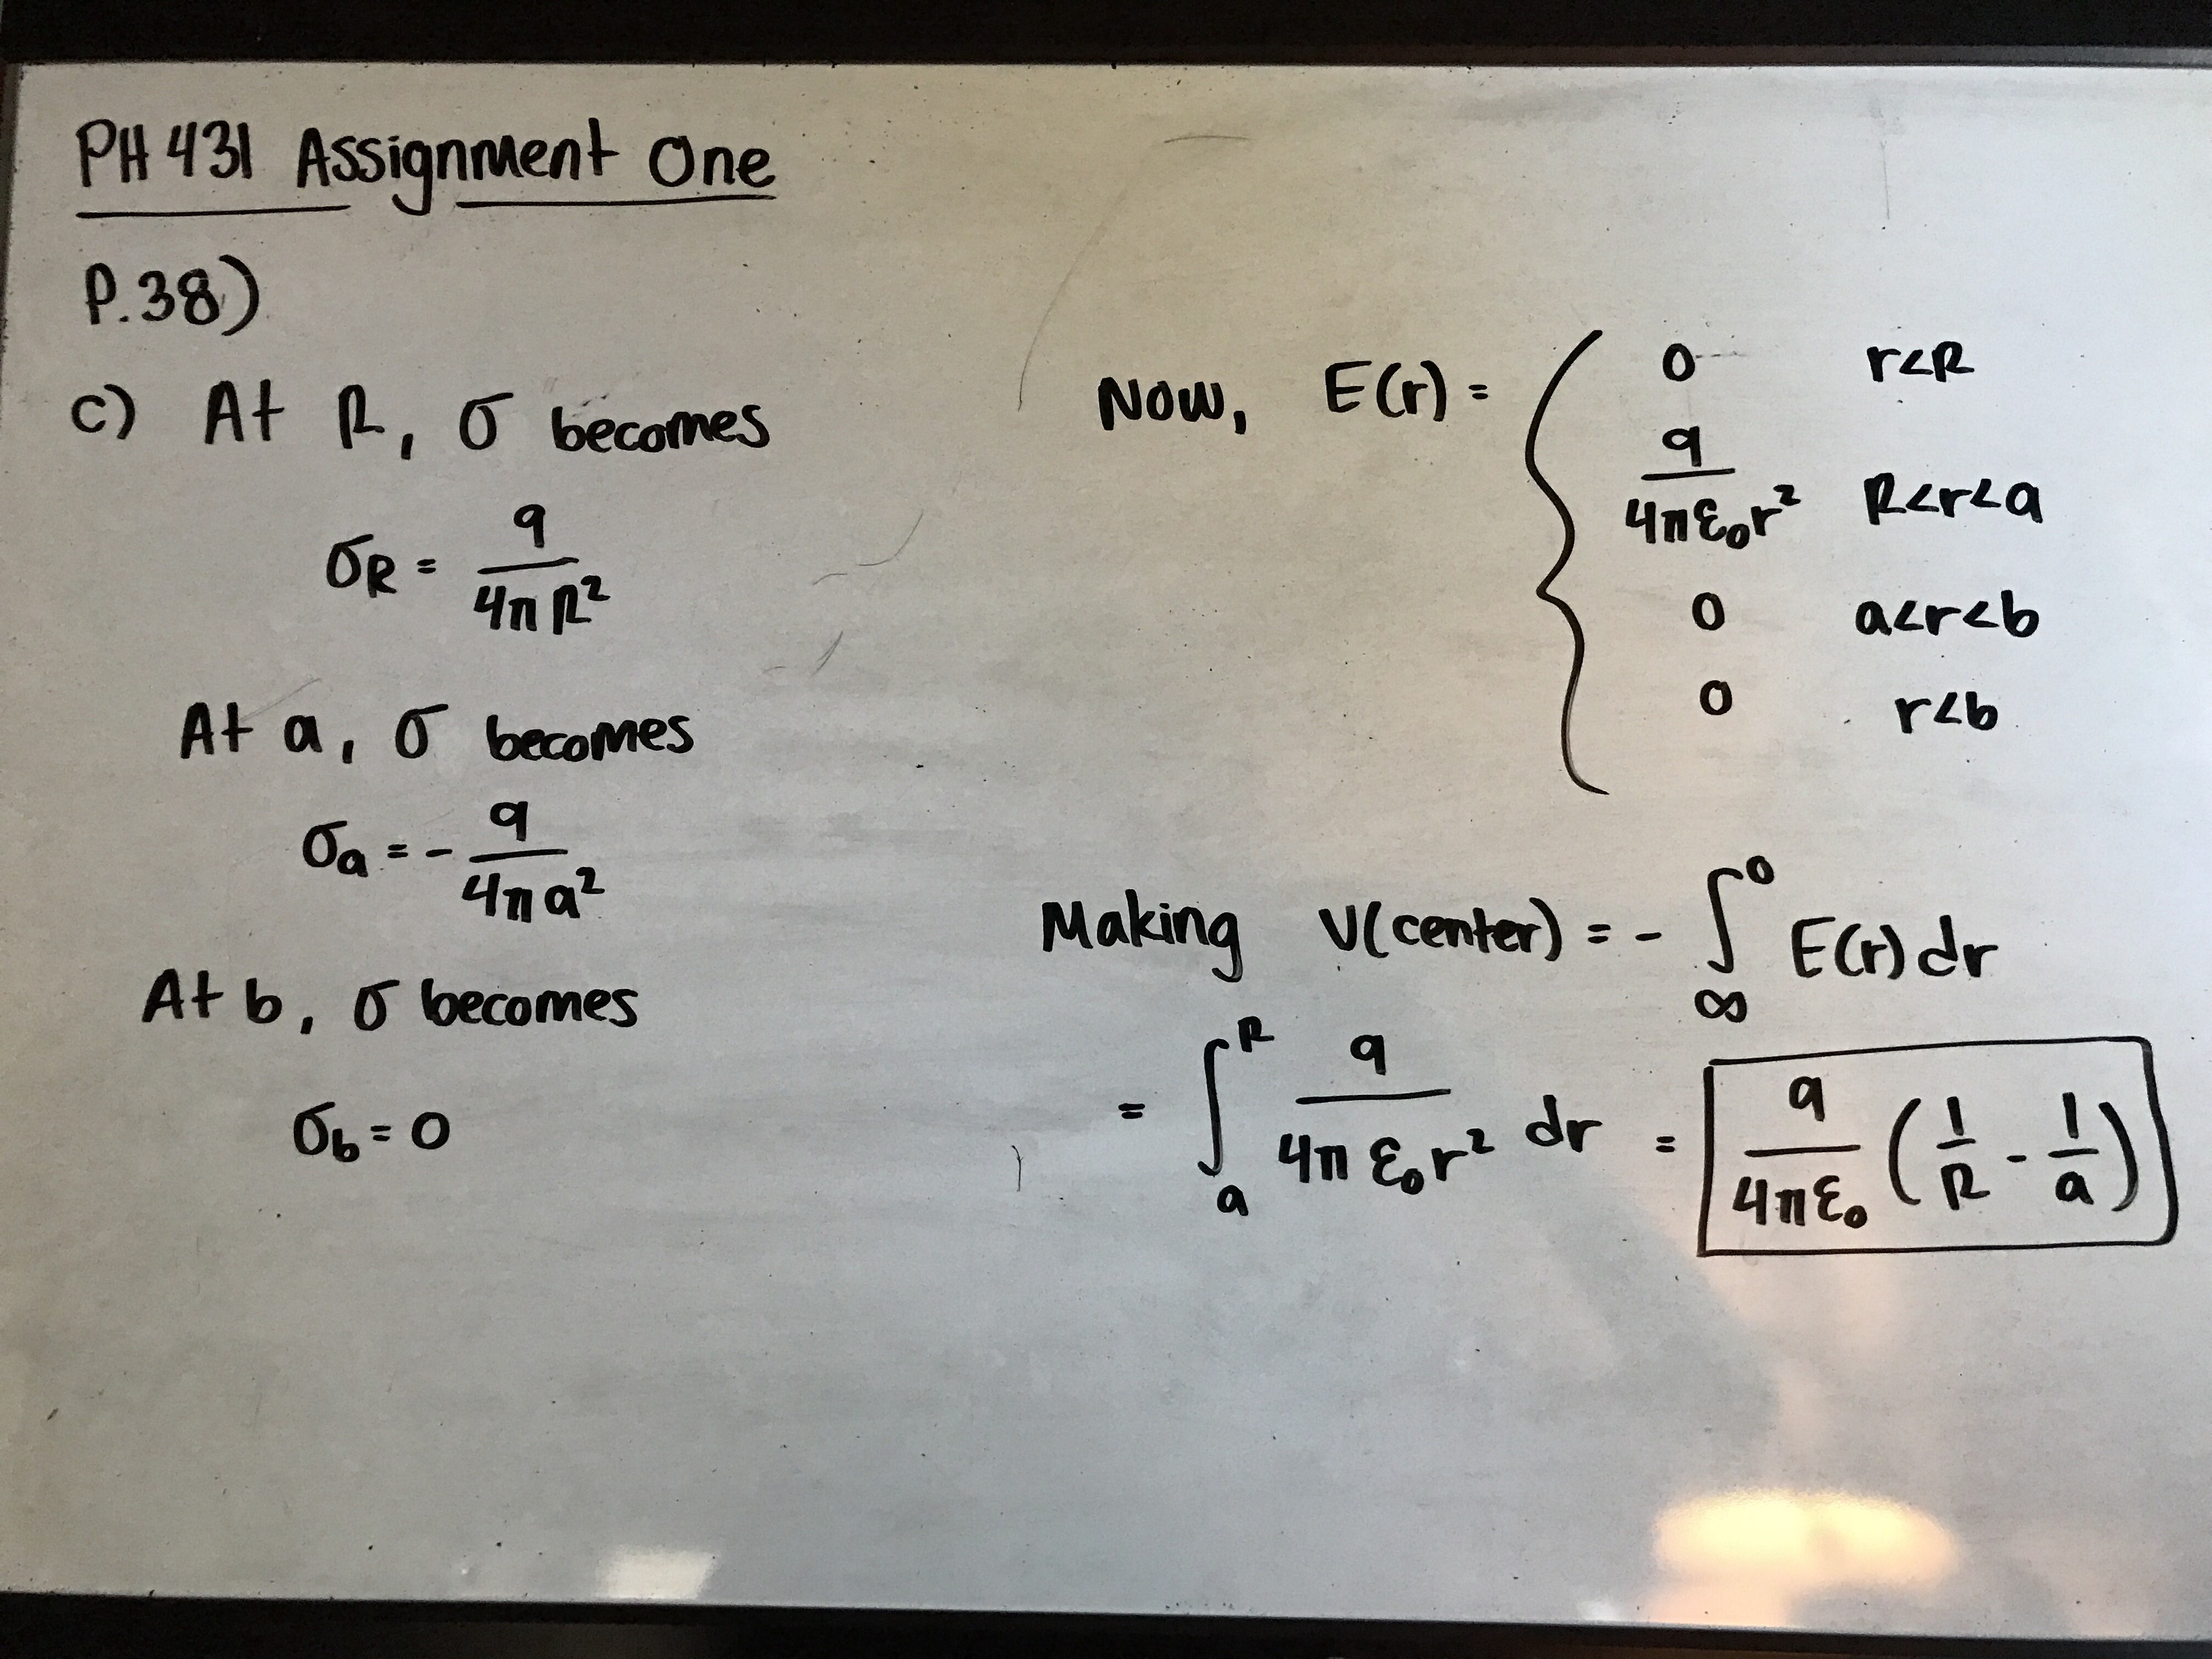 PH 431 Assignment One
P.38)
c) At R, σ becomes
σ_R = q / 4πR²
At a, σ becomes
σ_a = - q / 4πa²
At b, σ becomes
σ_b = 0
Now, E(r) = {
0 r<R
q / 4πε₀r² R<r<a
0 a<r<b
0 r<b
Making V(center) = - ∫_∞^0 E(r) dr
= ∫_a^R q / 4πε₀r² dr = q / 4πε₀ (1/R - 1/a)